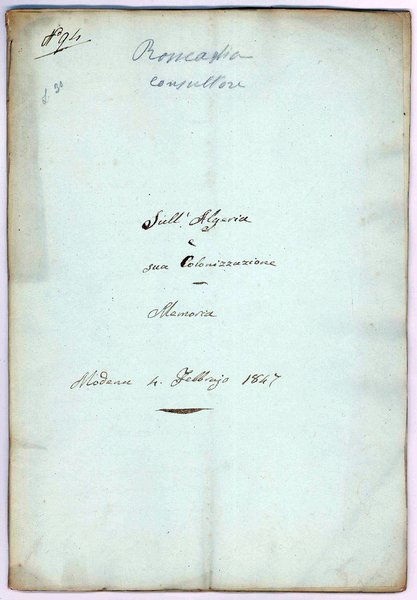 N.º 94
consultore
£. 90
Sull'Algeria
e
sua Colonizzazione
Memoria
Modena 4. Febbrajo 1847